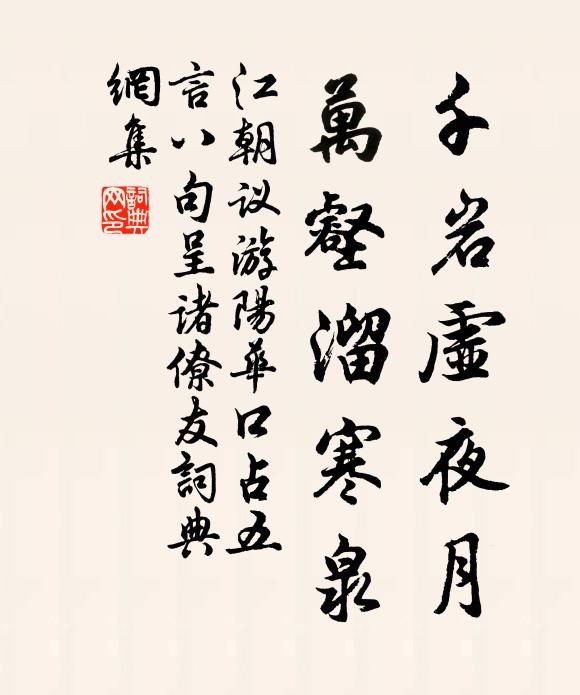 千岩虚夜月
萬壑溜寒泉
江朝议游陽華口占五
言八句呈诸僚友詞典
網集
詞典网印